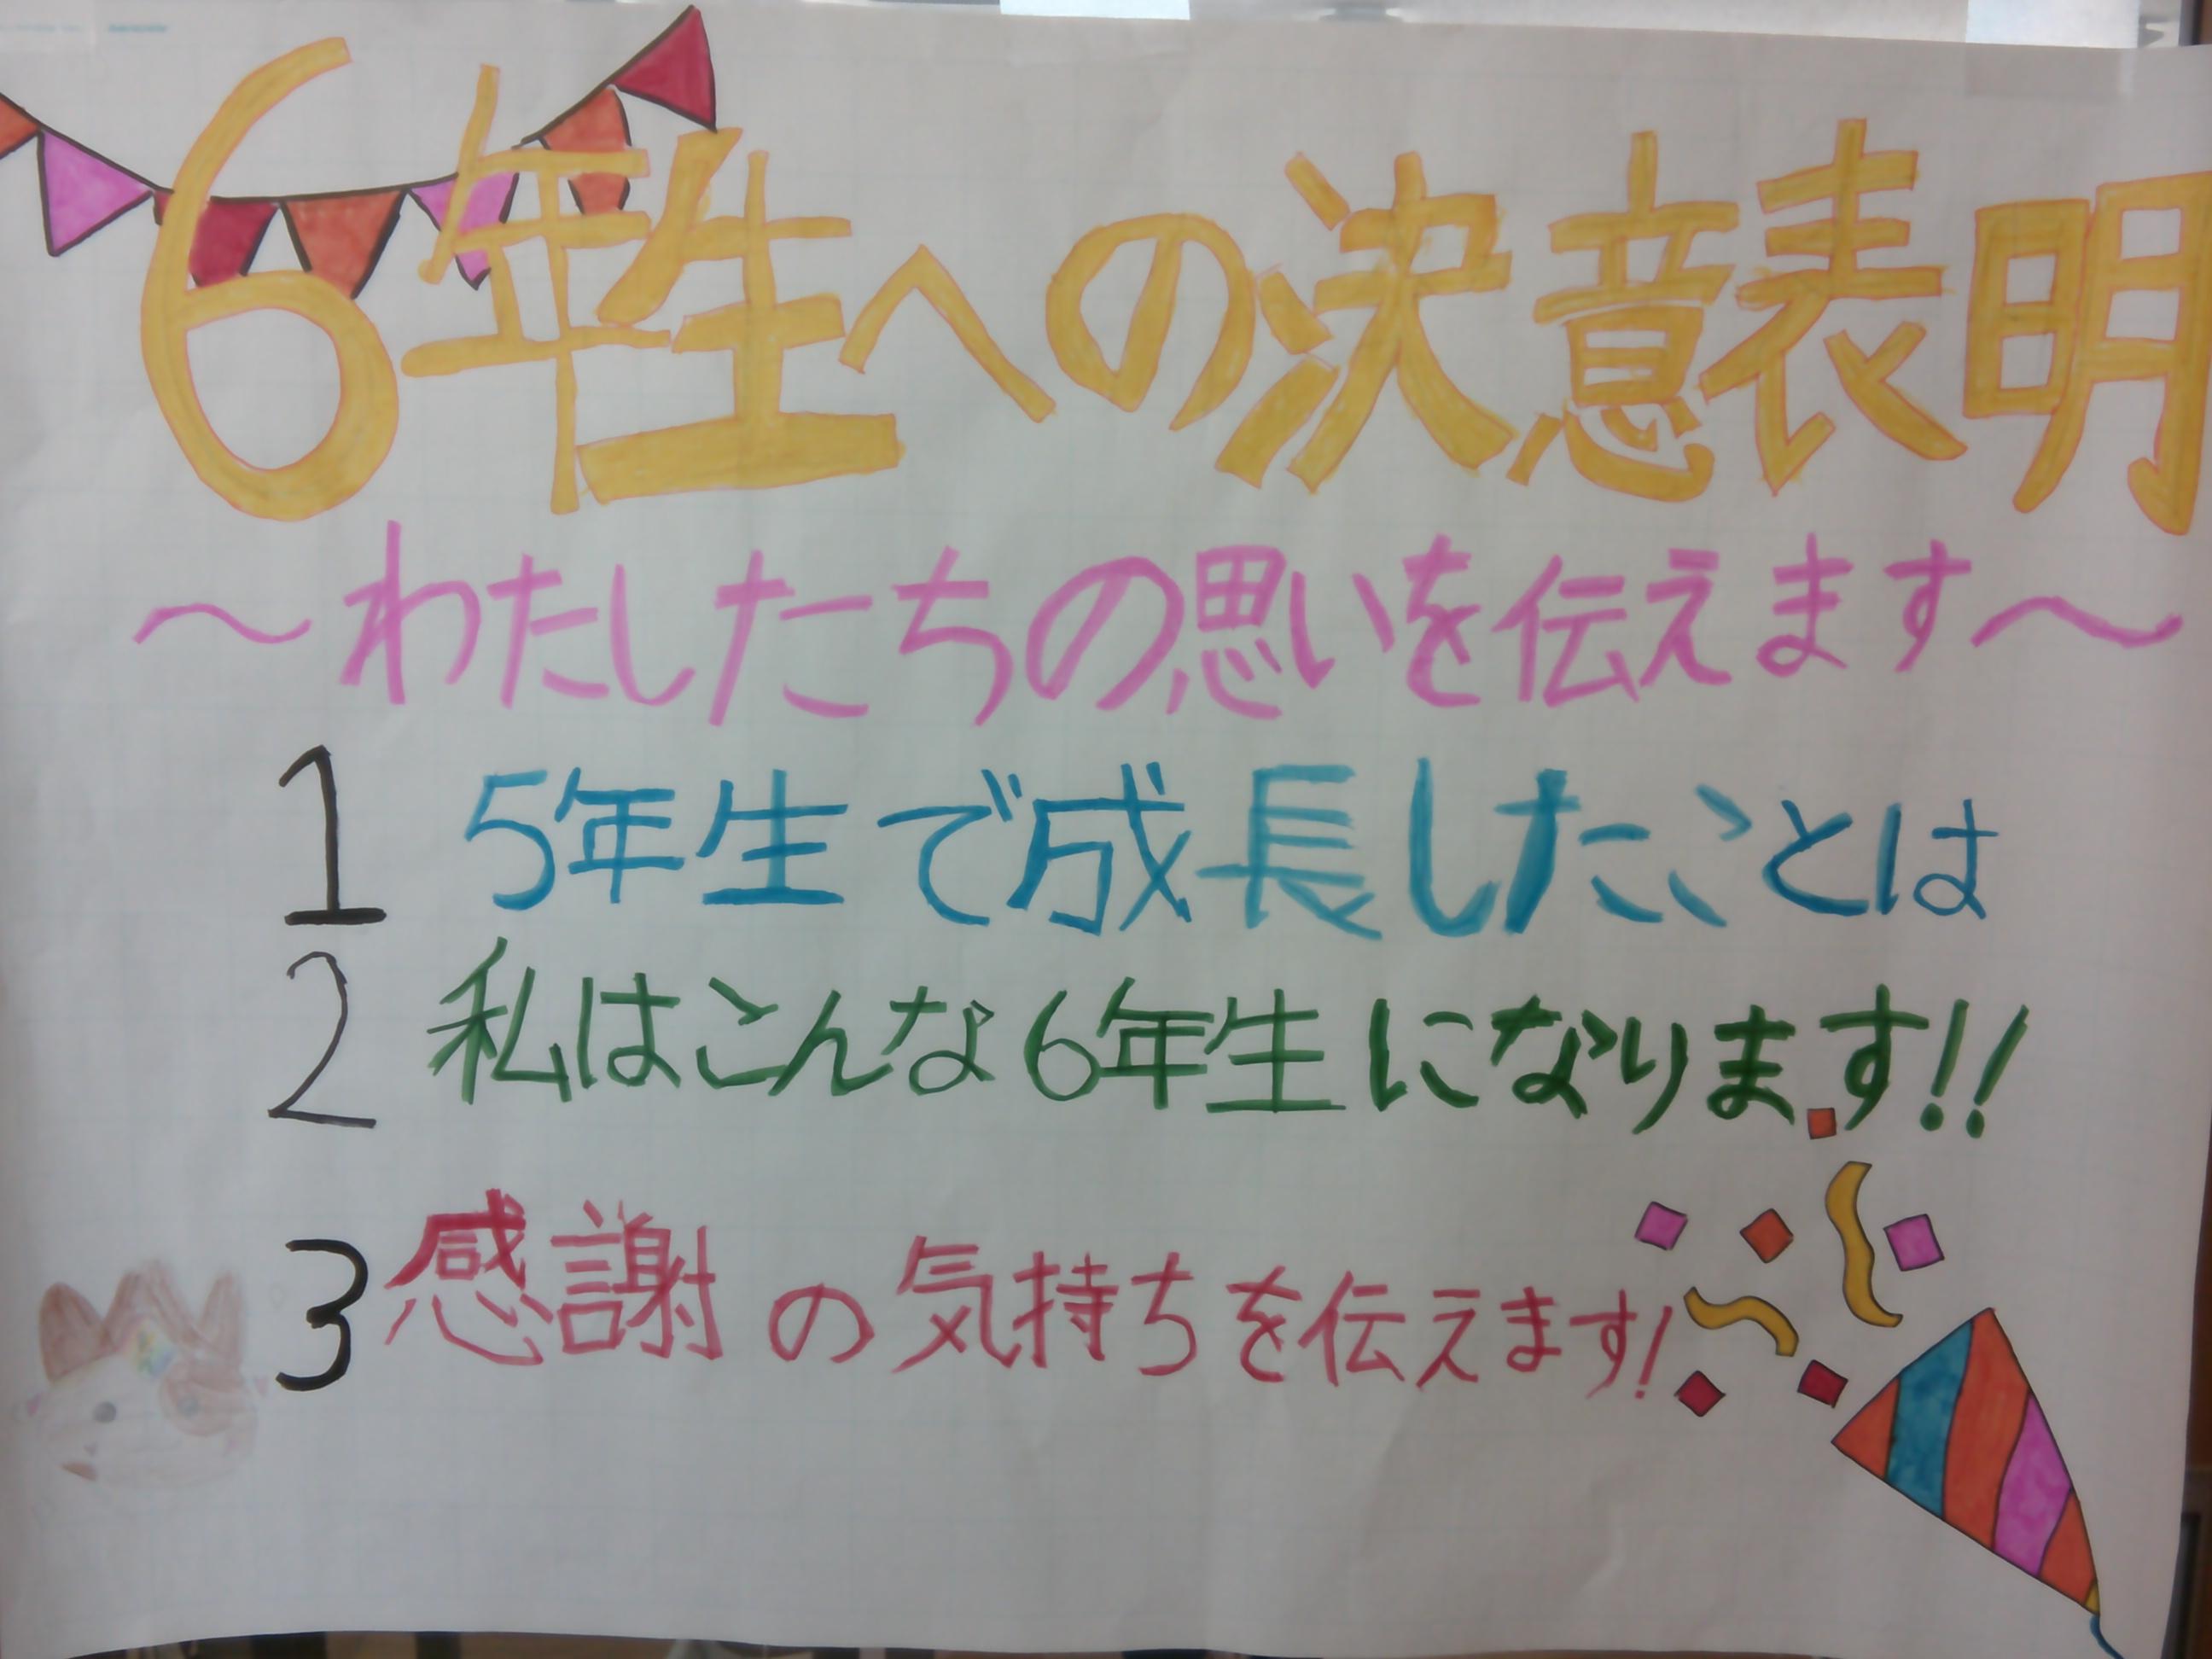 6年生への決意表明
～わたしたちの思いを伝えます～
1 5年生で成長したことは
2 私はこんな6年生になります!!
3 感謝の気持ちを伝えます!